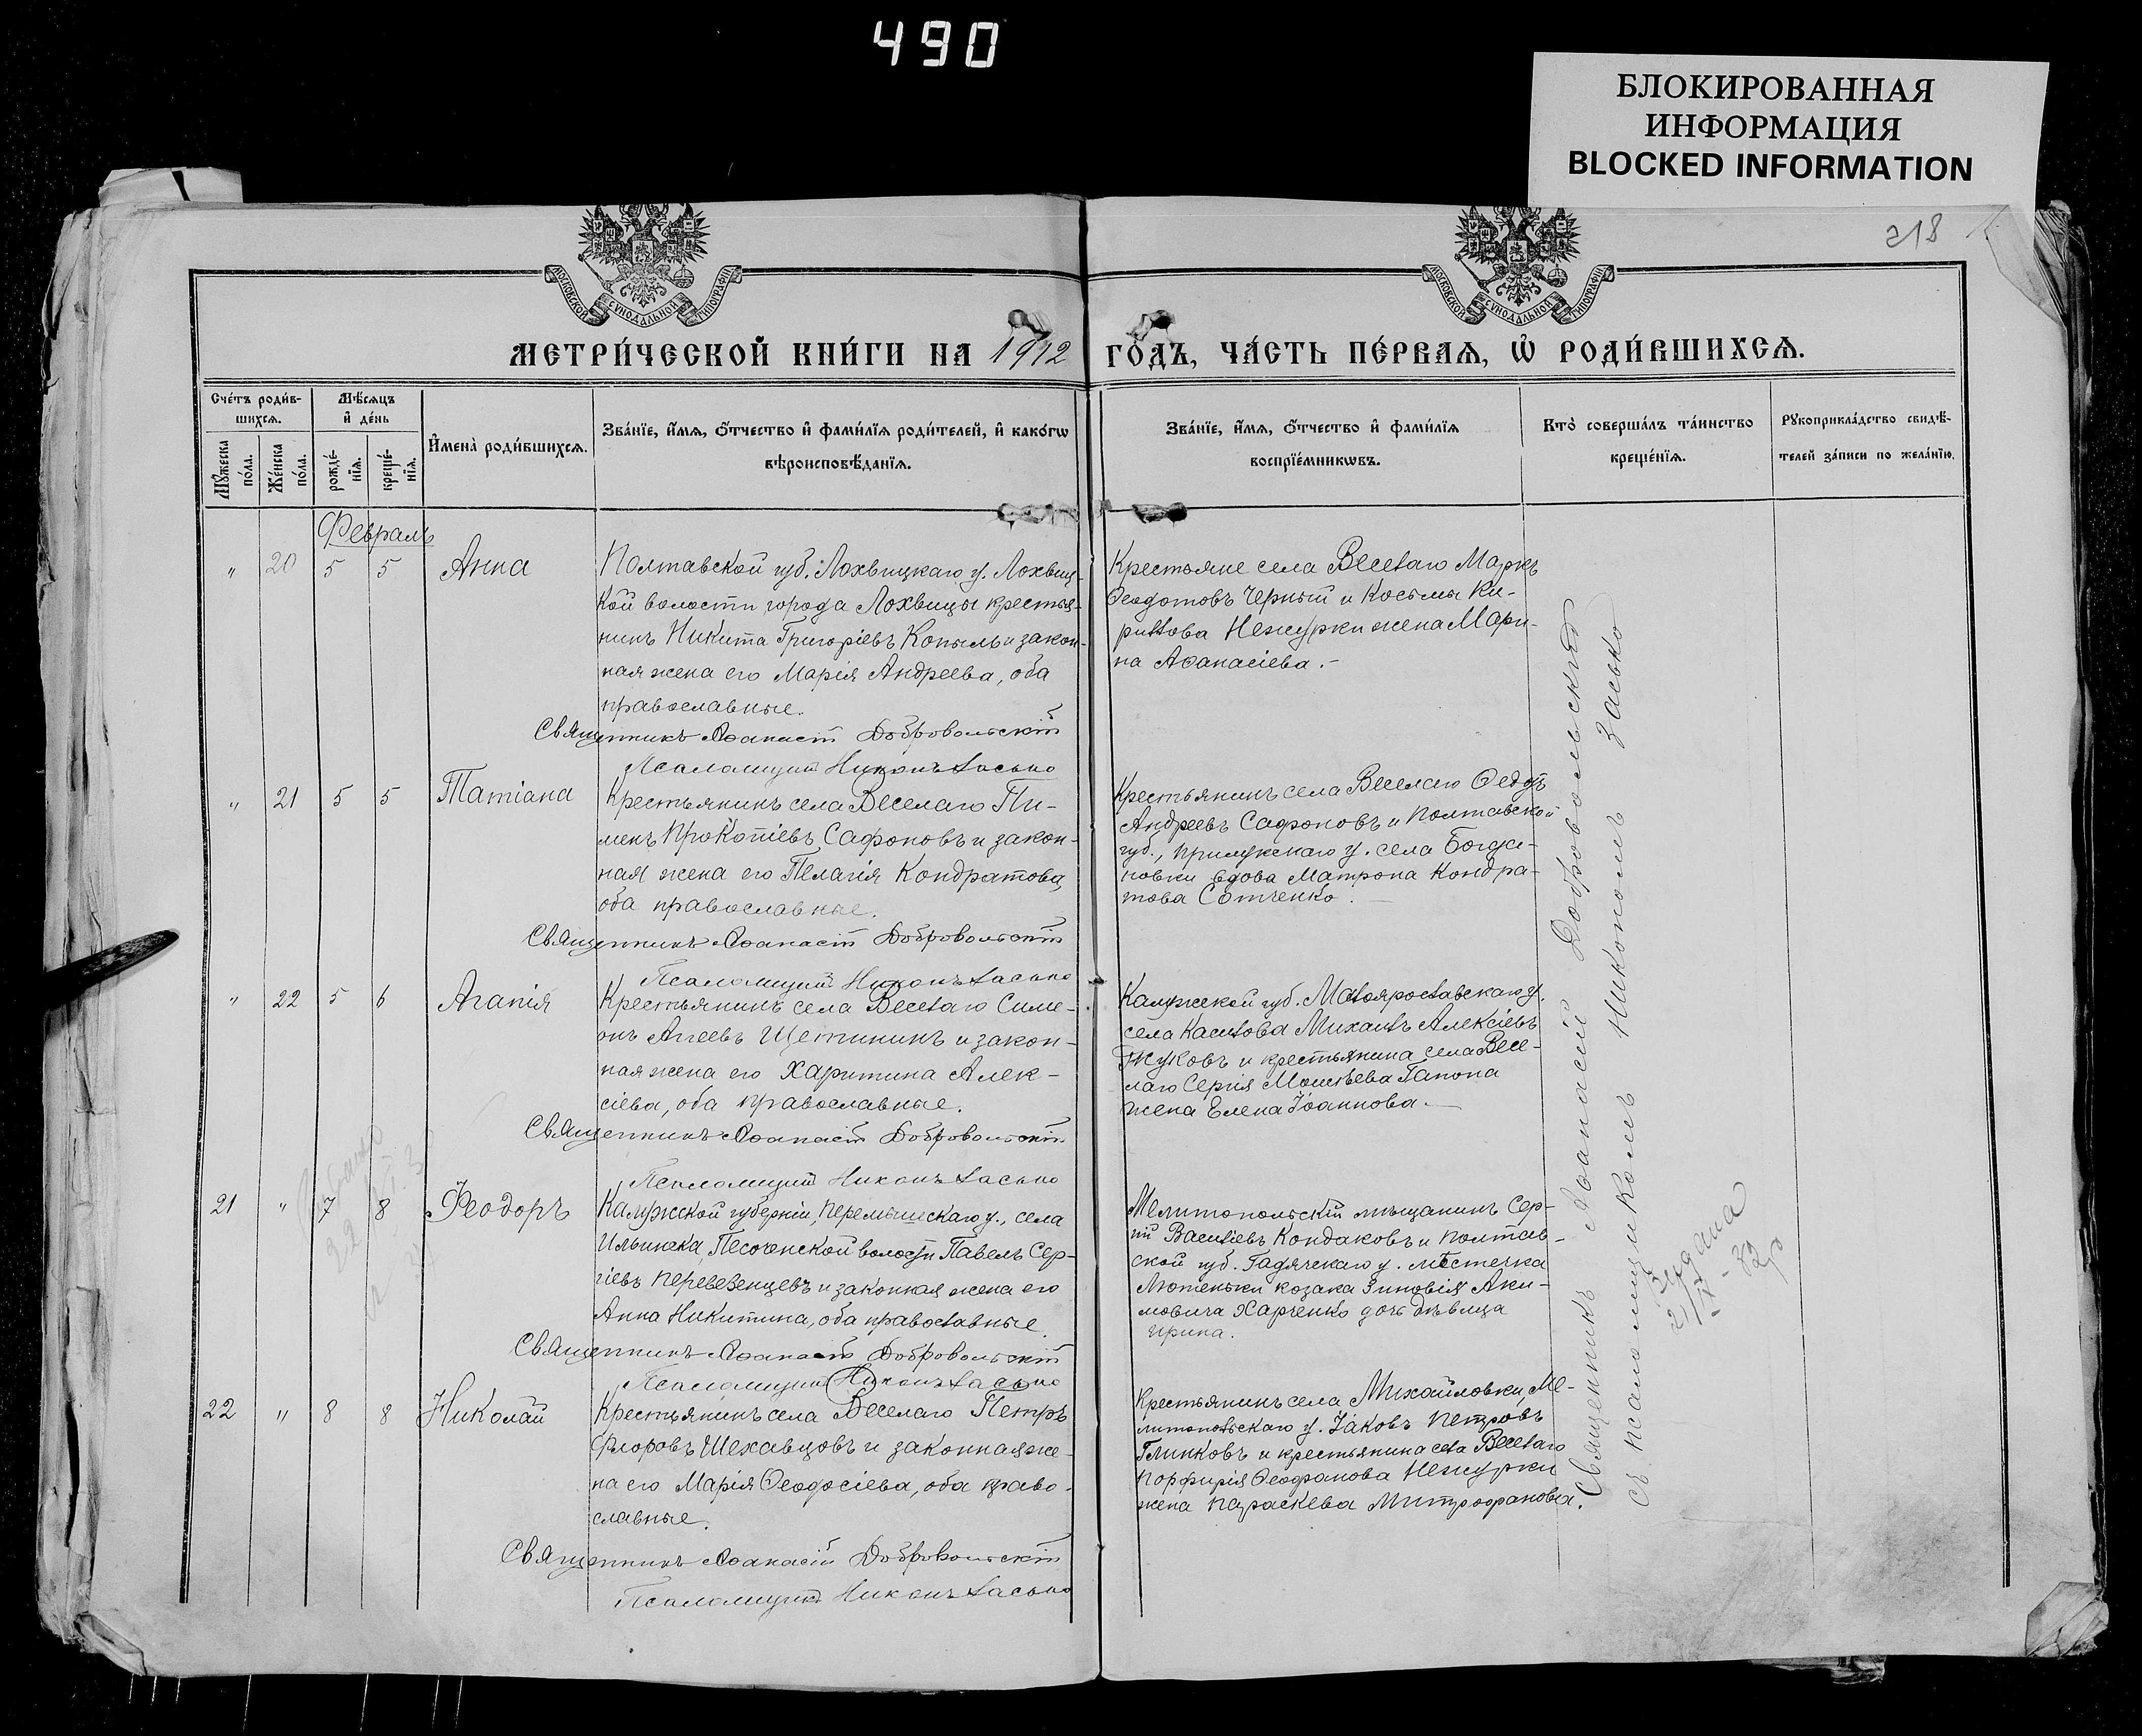 490
БЛОКИРОВАННАЯ
ИНФОРМАЦИЯ
BLOCKED INFORMATION
218
МОСКОВСКОЙ СУНОДАЛЬНОЙ ТИПОГРАФІИ
МОСКОВСКОЙ СУНОДАЛЬНОЙ ТИПОГРАФІИ
МЕТРИ́ЧЕСКОЙ КНИ́ГИ НА 1912 ГО́ДЪ, ЧА́СТЬ ПЕ́РВАѦ, Ѡ҆ РОДИ́ВШИХСѦ.
Сче́тъ роди́в-
шихсѧ.
Мѣ́сѧцъ
и҆ де́нь
Мꙋ́жеска
по́ла.
Же́нска
по́ла.
рожде́-
нїѧ.
креще́-
нїѧ.
И҆мена̀ роди́вшихсѧ.
Зва́нїе, и҆́мѧ, ѻ҆́тчество и҆ фами́лїѧ роди́телей, и҆ како́гѡ
вѣроисповѣ́данїѧ.
Зва́нїе, и҆́мѧ, ѻ҆́тчество и҆ фами́лїѧ
воспрїе́мникѡвъ.
Кто̀ соверша́лъ та́инство
креще́нїѧ.
Рꙋкоприкла́дство свидѣ́-
телей за́писи по жела́нїю.
Февраль
" 20 5 5 Анна
Полтавской губ. Лохвицкаго у. Лохвиц-
кой волости города Лохвицы крестья-
нинъ Никита Григоріевъ Копыль и закон-
ная жена его Марія Андреева, оба
православные.
Священникъ Аѳанасій Добровольскій
Псаломщикъ Никонъ Засько
Крестьяне села Веселаго Маркъ
Ѳеодотовъ Черный и Косьмы Ки-
рилова Нежурки жена Мари-
на Аѳанасіева.-
" 21 5 5 Татіана
Крестьянинъ села Веселаго Пи-
менъ Прокопіевъ Сафоновъ и закон-
ная жена его Пелагія Кондратова,
оба православные.
Священникъ Аѳанасій Добровольскій
Псаломщикъ Никонъ Засько
Крестьянинъ села Веселаго Ѳедоръ
Андреевъ Сафоновъ и Полтавской
губ., Прилукскаго у. села Богда-
новки вдова Матрона Кондра-
това Сотченко.
" 22 5 6 Агапія
Крестьянинъ села Веселаго Симе-
онъ Агеевъ Щетининъ и закон-
ная жена его Харитина Алек-
сіева, оба православные.
Священникъ Аѳанасій Добровольскій
Псаломщикъ Никонъ Засько
Калужской губ. Малоярославскаго у.
села Касилова Михаилъ Алексіевъ
Жуковъ и крестьянина села Весе-
лаго Сергія Моисѣева Гапона
жена Елена Іоаннова.-
21 " 7 8 Феодоръ
Калужской губерніи, Перемышскаго у., села
Ильинска, Песоченской волости Павелъ Сер-
гіевъ Перевезенцевъ и законная жена его
Анна Никитина, оба православные.
Священникъ Аѳанасій Добровольскій
Псаломщикъ Никонъ Засько
Мелитопольскій мѣщанинъ Сер-
гій Василіевъ Кондаковъ и Полтав-
ской губ. Гадячскаго у. мѣстечка
Лютеньки козака Зиновія Аки-
мовича Харченко дочь дѣвица
Ирина.
22 " 8 8 Николай
Крестьянинъ села Веселаго Петръ
Флоровъ Шехавцовъ и законная же-
на его Марія Ѳеодосіева, оба право-
славные.
Священникъ Аѳанасій Добровольскій
Псаломщикъ Никонъ Засько
Крестьянинъ села Михайловки, Ме-
литопольскаго у. Іаковъ Петровъ
Глинковъ и крестьянина села Веселаго
Порфирія Ѳеофанова Нежурки
жена Параскева Митрофанова.
Священникъ Аѳанасій Добровольскій
съ псаломщикомъ Никономъ Засько